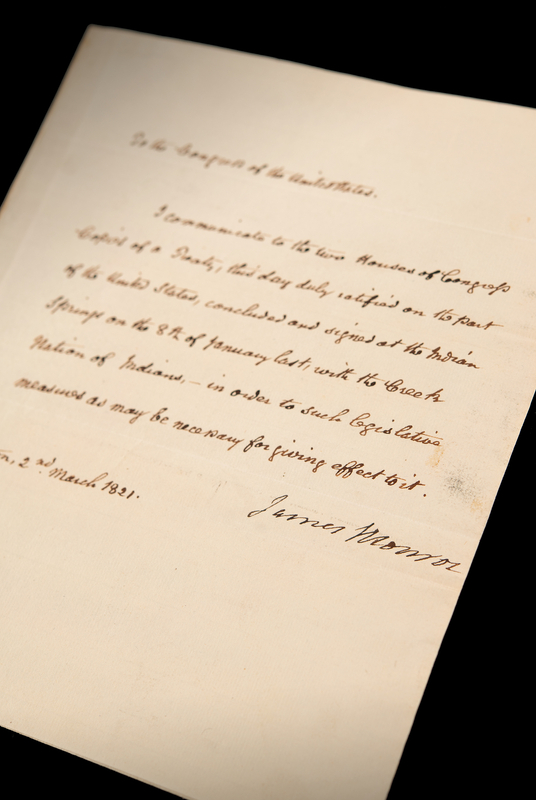 To the Congress of the United States.
I communicate to the two Houses of Congress
Copies of a Treaty, this day duly ratified on the part
of the United States, concluded and signed at the Indian
Springs on the 8th of January last, with the Creek
Nation of Indians, — in order to such legislative
measures as may be necessary for giving effect to it.
2nd March 1821.
James Monroe